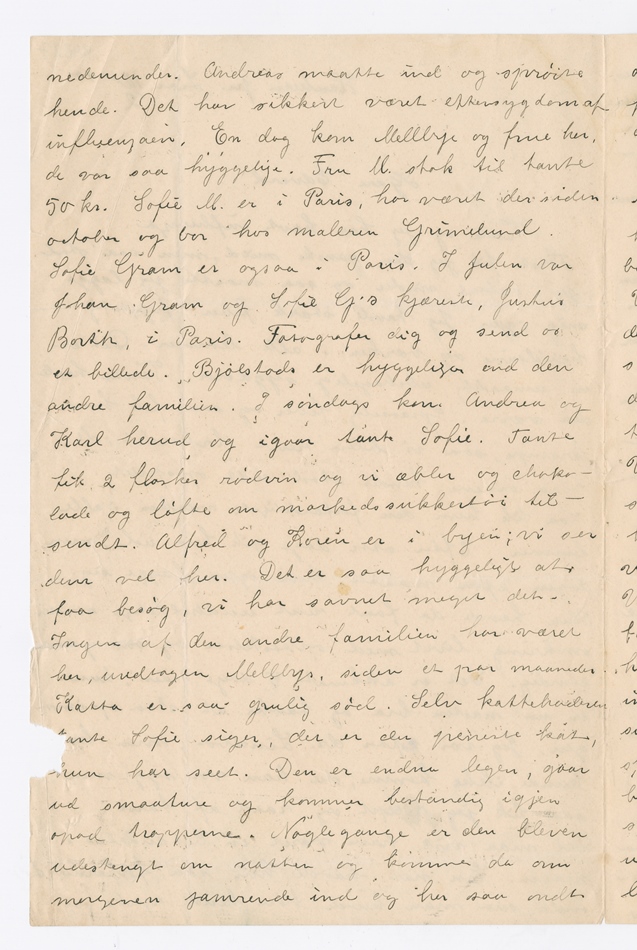 nedenunder. Andreas maatte ind og sprøite
hende. Det har sikkert været eftersygdom af
influenzaen. En dag kom Mellbye og frue her,
de var saa hyggelige. Fru M. stak til tante
50 kr. Sofie M. er i Paris, har været der siden
october og bor hos maleren Grimelund.
Sofie Gram er ogsaa i Paris. I Julen var
Johan Gram og Sofie G's kjæreste, Justus
Barth, i Paris. Fotografer dig og send os
et billede. Bjølstads er hyggeliger end den
andre familien. I søndags kom Andrea og
Karl herud og igaar tante Sofie. Tante
fik 2 flasker rødvin og vi æbler og choko-
lade og løfte om markedssukkertøi til-
sendt. Alfred og Koren er i byen; vi ser
dem vel her. Det er saa hyggeligt at
faa besøg, vi har savnet meget det.
Ingen af den andre familien har været
her, undtagen Mellbys, siden et par maaneder.
Katta er saa grulig sød. Selv kattehaderen
tante Sofie siger, det er den peneste kat,
hun har seet. Den er endnu legen, gaar
ud smaature og kommer bestandig igjen
opad trapperne. Nogle gange er den bleven
udestengt om natten og kommer da om
morgenen jamrende ind og har saa ondt